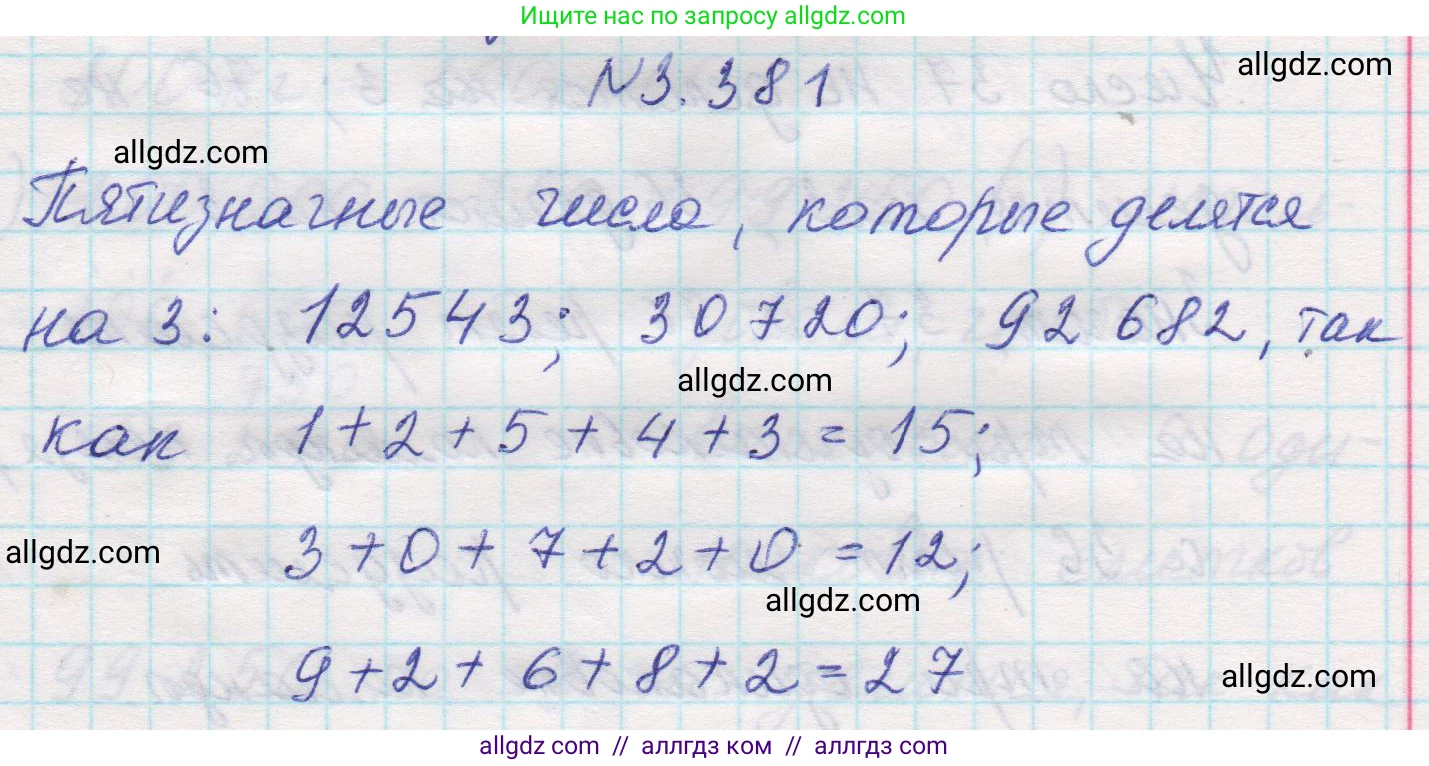 Ищите нас по запросу allgdz.com
N3.381
allgdz.com
allgdz.com
Пятизначные числа, которые делятся
на 3: 12543; 30720; 92 682, так
allgdz.com
как 1+2+5+4+3=15;
allgdz.com
3+0+7+2+0=12;
allgdz.com
9+2+6+8+2=27
allgdz.com
allgdz com // аллгдз ком // аллгдз com